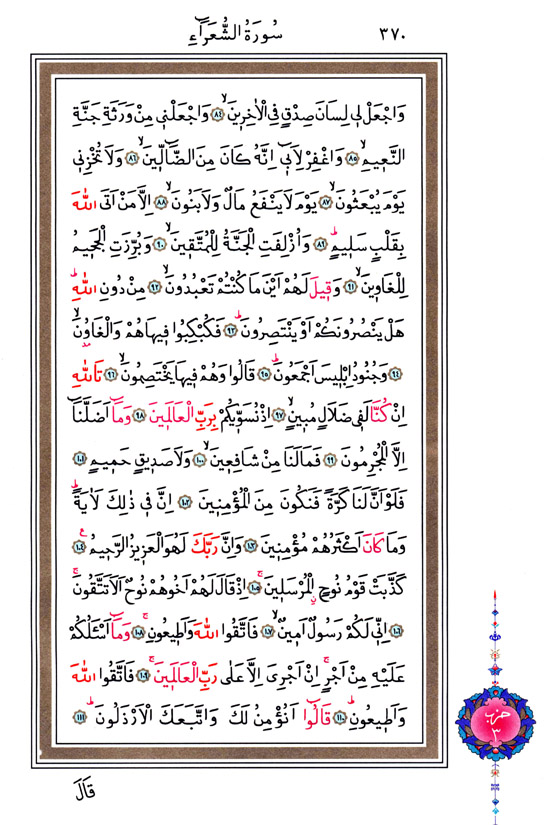 ٣٧٠
سُورَةُ الشُّعَرَاءِ
وَاجْعَلْ لِي لِسَانَ صِدْقٍ فِي الْاٰخِرِينَۙ ﴿٨٤﴾ وَاجْعَلْنِي مِنْ وَرَثَةِ جَنَّةِ
النَّعِيمِۙ ﴿٨٥﴾ وَاغْفِرْ لِاَبِٓي اِنَّهُ كَانَ مِنَ الضَّٓالِّينَۙ ﴿٨٦﴾ وَلَا تُخْزِنِي
يَوْمَ يُبْعَثُونَۙ ﴿٨٧﴾ يَوْمَ لَا يَنْفَعُ مَالٌ وَلَا بَنُونَۙ ﴿٨٨﴾ اِلَّا مَنْ اَتَى اللّٰهَ
بِقَلْبٍ سَلِيمٍۜ ﴿٨٩﴾ وَاُزْلِفَتِ الْجَنَّةُ لِلْمُتَّقِينَۙ ﴿٩٠﴾ وَبُرِّزَتِ الْجَحِيمُ
لِلْغَاوِينَۙ ﴿٩١﴾ وَقِيلَ لَهُمْ اَيْنَ مَا كُنْتُمْ تَعْبُدُونَۙ ﴿٩٢﴾ مِنْ دُونِ اللّٰهِۜ
هَلْ يَنْصُرُونَكُمْ اَوْ يَنْتَصِرُونَۜ ﴿٩٣﴾ فَكُبْكِبُوا فِيهَا هُمْ وَالْغَاوُ۫نَۙ
﴿٩٤﴾ وَجُنُودُ اِبْلِيسَ اَجْمَعُونَۜ ﴿٩٥﴾ قَالُوا وَهُمْ فِيهَا يَخْتَصِمُونَۙ ﴿٩٦﴾ تَاللّٰهِ
اِنْ كُنَّا لَفِي ضَلَالٍ مُبِينٍۙ ﴿٩٧﴾ اِذْ نُسَوِّيكُمْ بِرَبِّ الْعَالَمِينَ ﴿٩٨﴾ وَمَٓا اَضَلَّنَٓا
اِلَّا الْمُجْرِمُونَ ﴿٩٩﴾ فَمَا لَنَا مِنْ شَافِعِينَۙ ﴿١٠٠﴾ وَلَا صَدِيقٍ حَمِيمٍ ﴿١٠١﴾
فَلَوْ اَنَّ لَنَا كَرَّةً فَنَكُونَ مِنَ الْمُؤْمِنِينَ ﴿١٠٢﴾ اِنَّ فِي ذٰلِكَ لَاٰيَةًۜ
وَمَا كَانَ اَكْثَرُهُمْ مُؤْمِنِينَ ﴿١٠٣﴾ وَاِنَّ رَبَّكَ لَهُوَ الْعَزِيزُ الرَّحِيمُ۟ ﴿١٠٤﴾
كَذَّبَتْ قَوْمُ نُوحٍۨ الْمُرْسَلِينَۚ ﴿١٠٥﴾ اِذْ قَالَ لَهُمْ اَخُوهُمْ نُوحٌ اَلَا تَتَّقُونَۚ
﴿١٠٦﴾ اِنِّي لَكُمْ رَسُولٌ اَمِينٌۙ ﴿١٠٧﴾ فَاتَّقُوا اللّٰهَ وَاَطِيعُونِۚ ﴿١٠٨﴾ وَمَٓا اَسْـَٔلُكُمْ
عَلَيْهِ مِنْ اَجْرٍۚ اِنْ اَجْرِيَ اِلَّا عَلٰى رَبِّ الْعَالَمِينَۚ ﴿١٠٩﴾ فَاتَّقُوا اللّٰهَ
وَاَطِيعُونِۜ ﴿١١٠﴾ قَالُٓوا اَنُؤْمِنُ لَكَ وَاتَّبَعَكَ الْاَرْذَلُونَۜ ﴿١١١﴾
حزب
٣
قَالَ